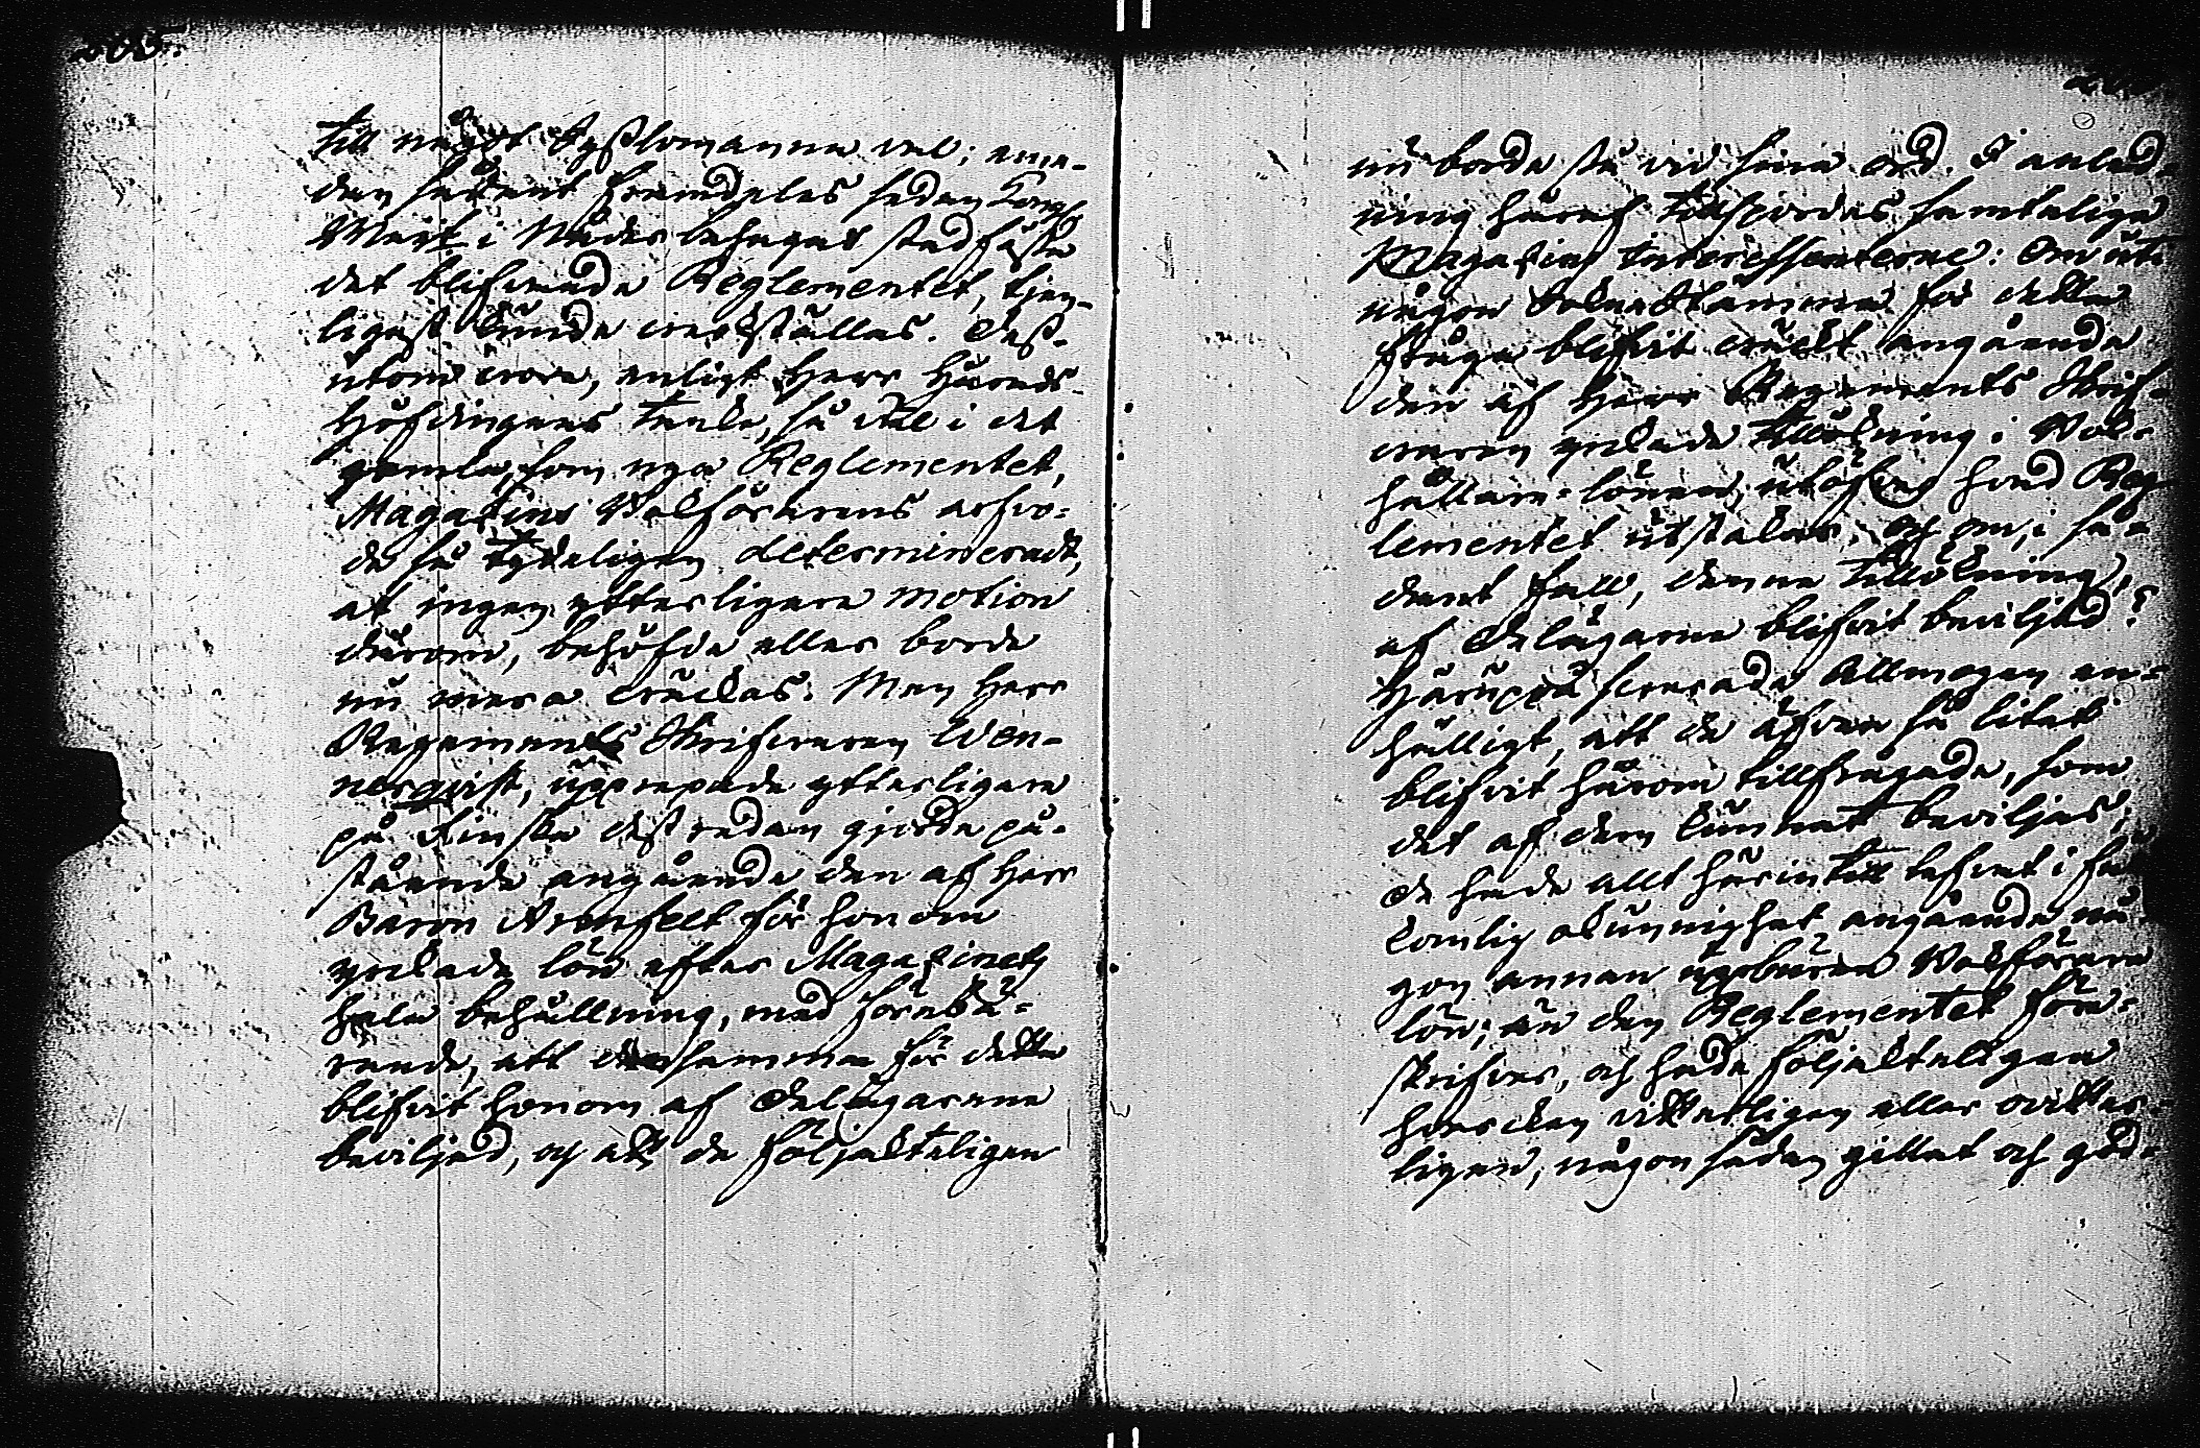 till något Sysslomanna val; eme-
dan sådant framdeles sedan Kongl
Maij:t i Nåder behagat stadfästa
det blifvande Reglementet, tjen-
ligast kunde värkställas. Dess-
utom vore, enligt Herr Härads-
Höfdingens tanke, så väl i det
gamla, som nya Reglementet,
Magasins Räkförarens arfvo-
de så tydeligen determineradt,
at ingen ytterligare motion
därom, behöfde eller borde
nu mera väckas. Men Herr
Regements Skrifvaren Wen-
nerqvist, upprepade ytterligare
på Finska dess redan gjorde på-
stående angående den af Herr
Baron Armfelt för honom
yrkade lön efter Magasinets
hela behållning, med förebä-
rande, att densamma för detta
blifvit honom af Delägarena
beviljad, och att de följakteligen
nu borde stå vid sina ord. I anled-
ning häraf tillspordes samtelige
Magasins Interessenterne: Om uti
någon Sockne Stämma för detta
fråga blifvit väckt angående
den af Herr Regements Skrif-
varen yrkade tillökning i Räk-
hållare-lönen, utöfver hvad Reg-
lementet utstakar, och om, i så-
dant fall, denna tillökning,
af Delägarne blifvit beviljad?
Häruppå svarade Allmogen en-
hälligt, att de äfven så litet
blifvit härom tillfrågade, som
det af dem kunnat beviljas;
De hade allt härintill lefvat i full-
komlig okunnighet angående nå-
gon annan uppburen Räkförare
lön, än den Reglementet före-
skrifver, och hade följakteligen
hvarken vitterligen eller ovitter-
ligen, någon sådan gillat och god-